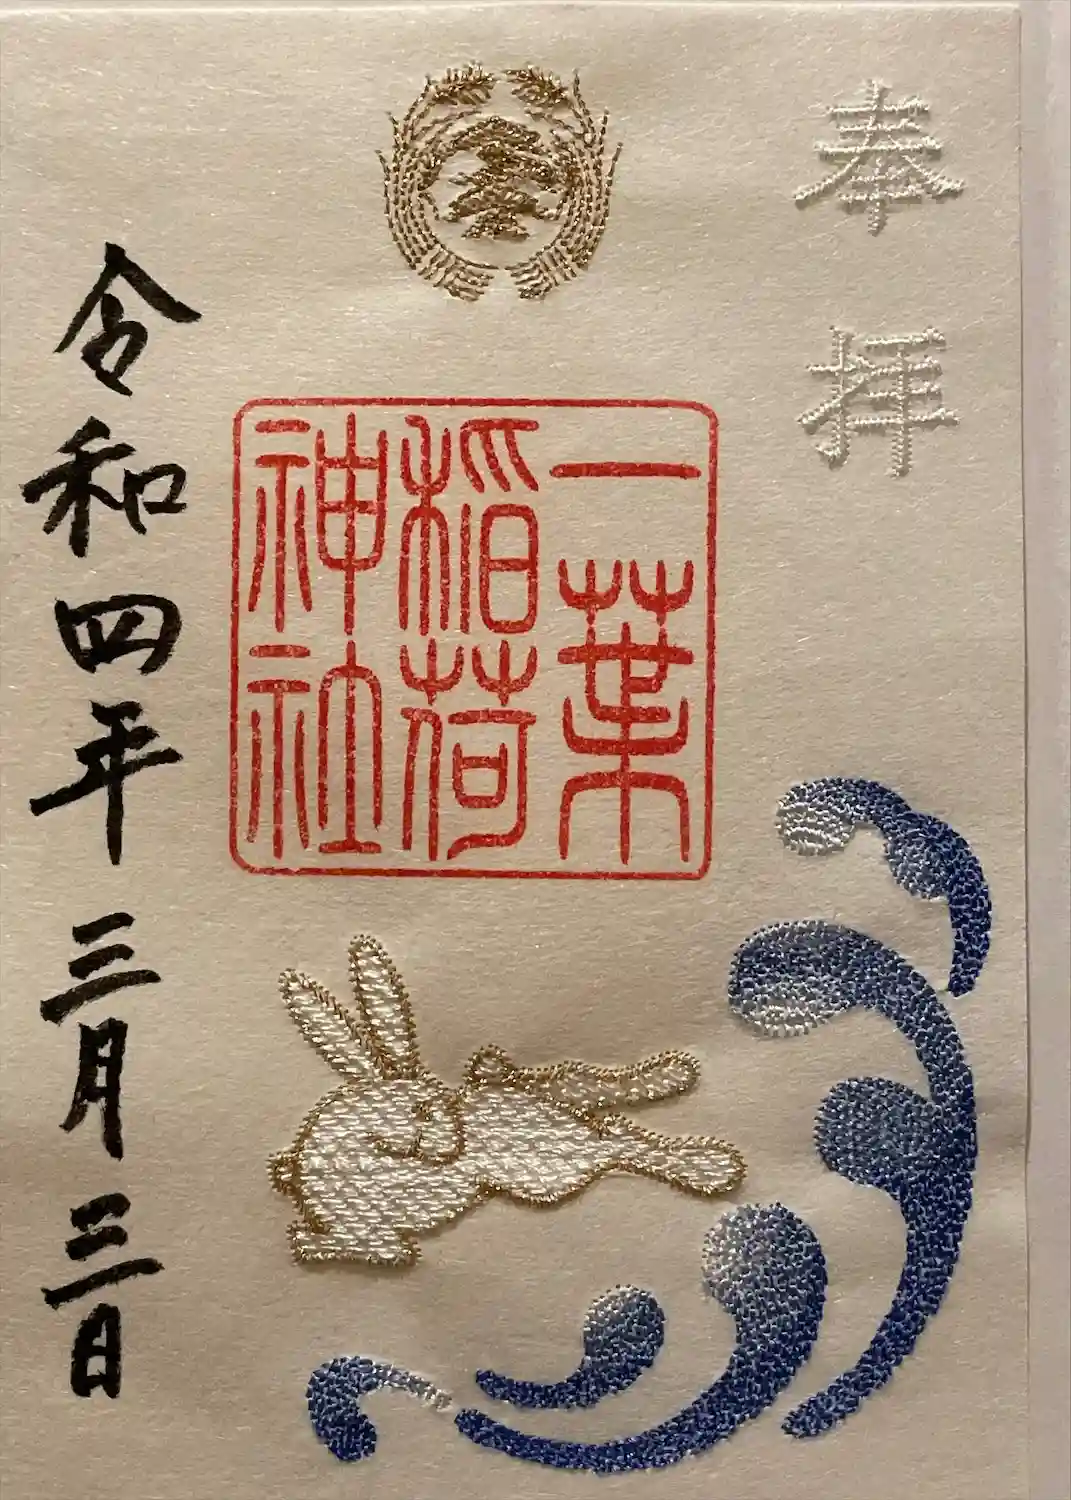 奉拝
一葉
稲荷
神社
令和四年三月三日